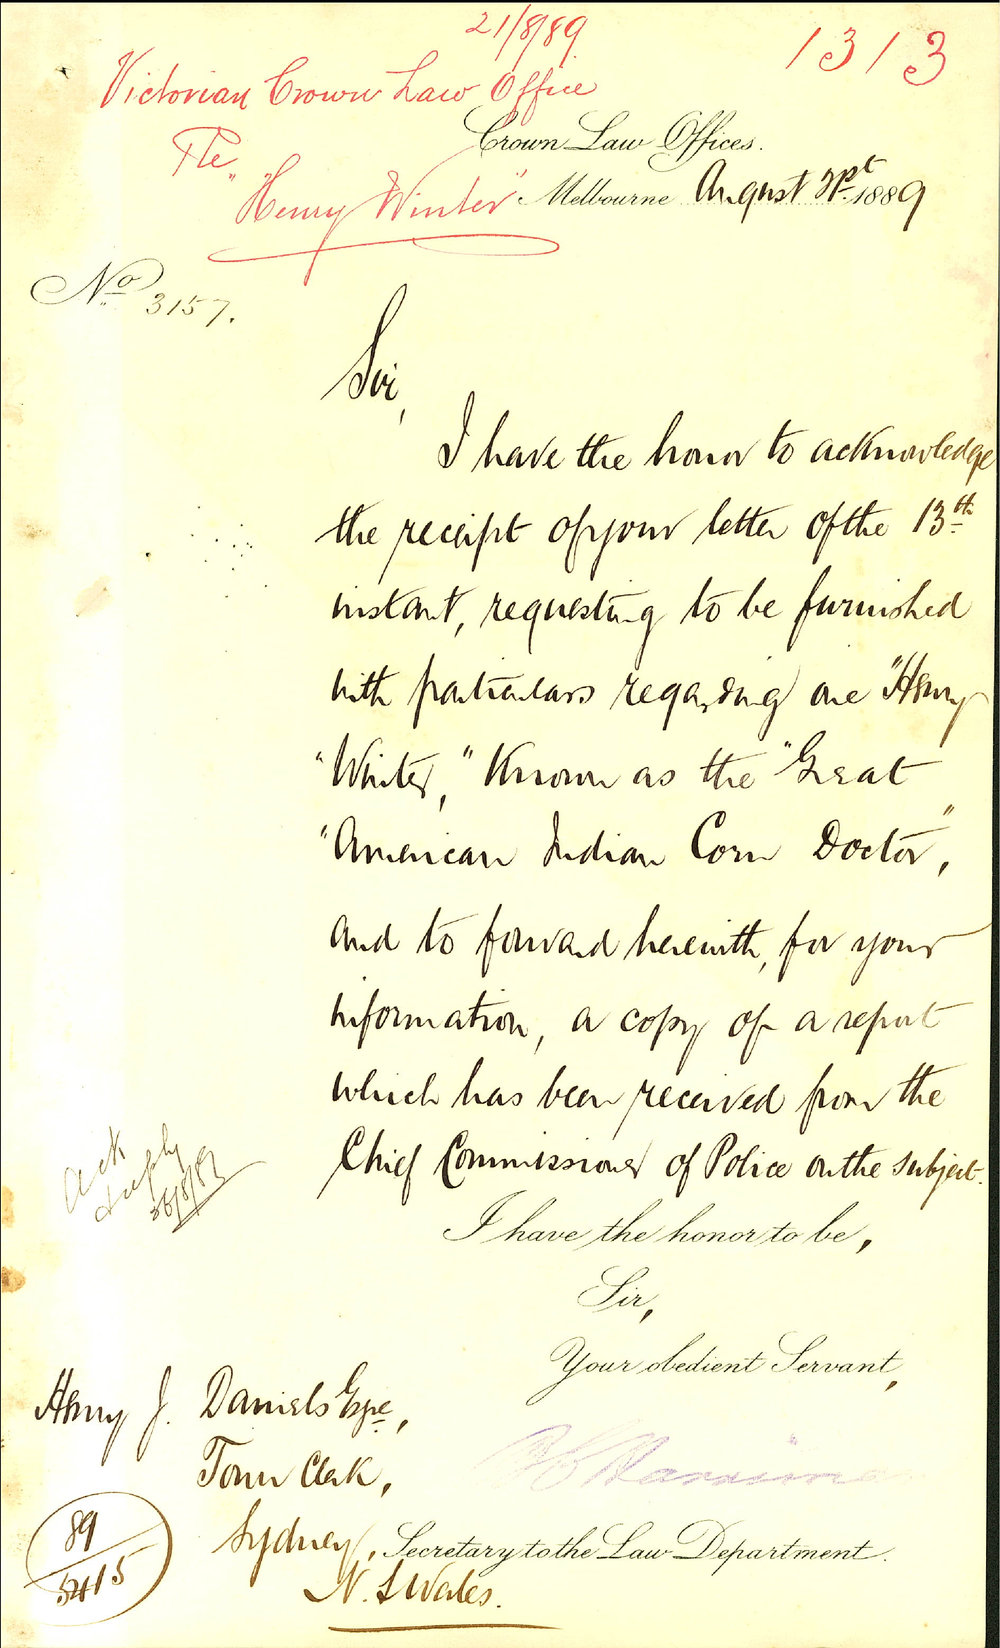 21/8/89
1313
Victorian Crown Law Office
re
"Henry Winter"
Crown Law Offices.
Melbourne August 21st 1889
No. 3157.
Sir,
I have the honor to acknowledge
the receipt of your letter of the 13th
instant, requesting to be furnished
with particulars regarding one "Henry
"Winter," known as the "Great
"American Indian Corn Doctor",
and to forward herewith, for your
information, a copy of a report
which has been received from the
Chief Commissioner of Police on the subject.
I have the honor to be,
Sir,
Your obedient Servant,
Secretary to the Law Department.
Ack
Henry J. Daniels Esqre,
Town Clerk,
Sydney,
N. S Wales.
89
5415